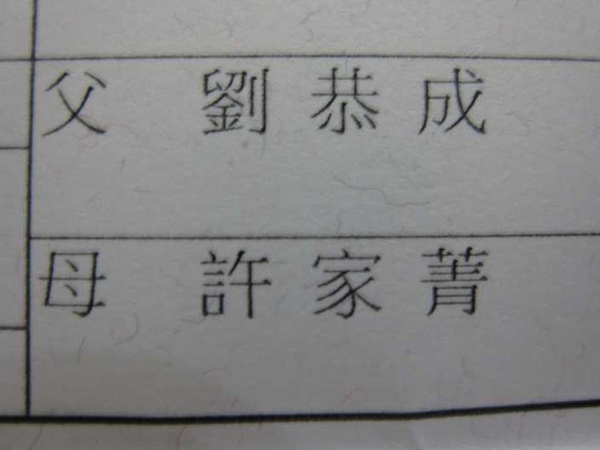 父 劉恭成
母 許家菁